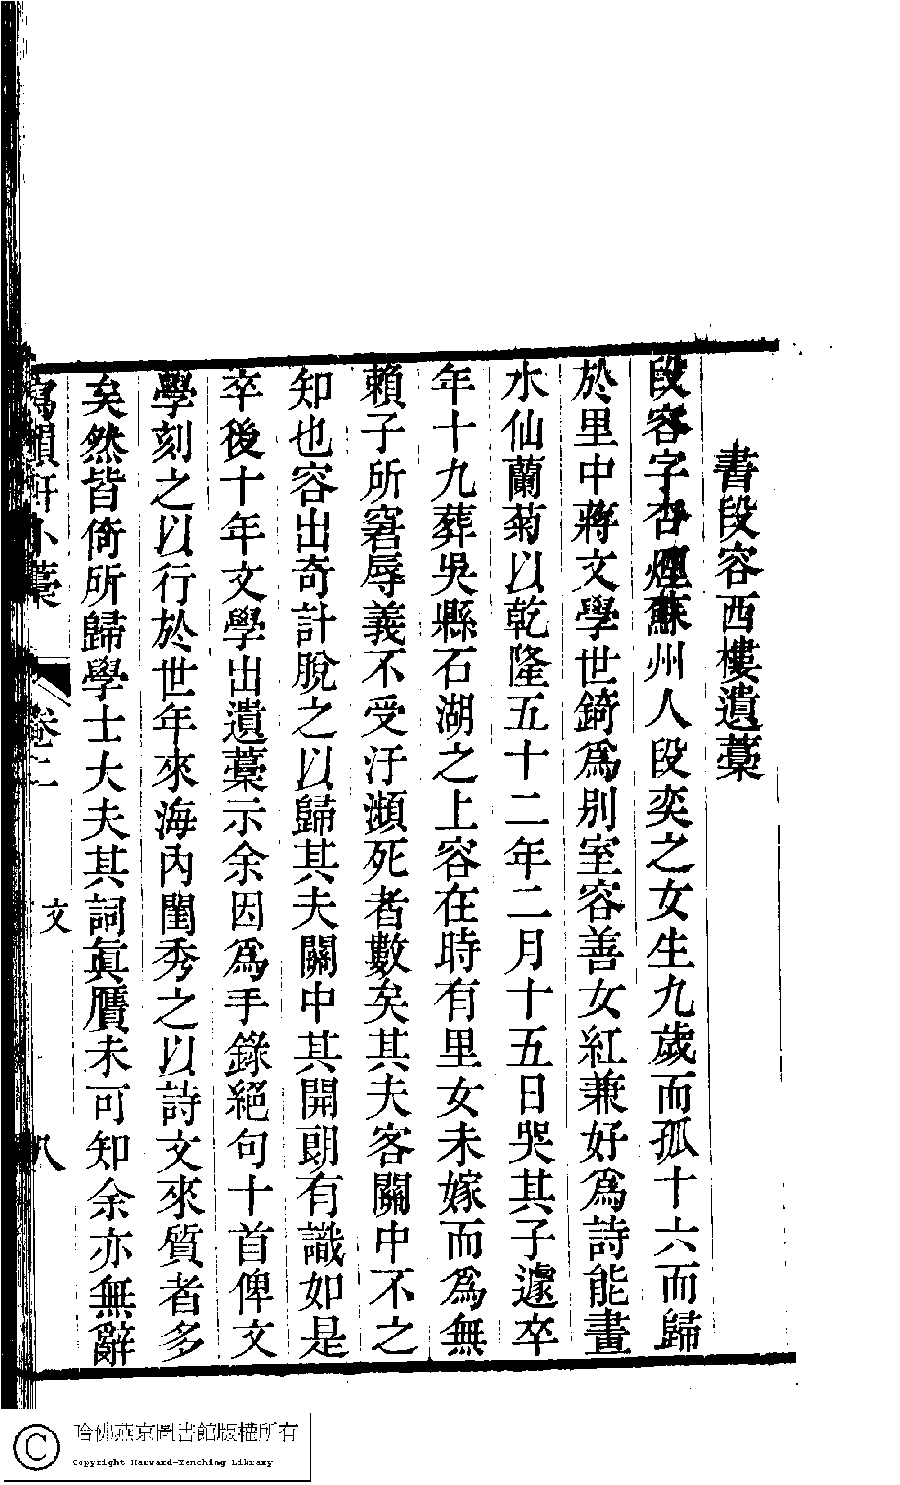 書段容西樓遺藁
段容字杏煙蘇州人段奕之女生九歲而孤十六而歸
於里中蔣文學世錡爲别室容善女紅兼好爲詩能畫
水仙蘭菊以乾隆五十二年二月十五日哭其子遽卒
年十九葬吳縣石湖之上容在時有里女未嫁而爲無
賴子所窘辱義不受汙瀕死者數矣其夫客關中不之
知也容出奇計脫之以歸其夫關中其開朗有識如是
卒後十年文學出遺藁示余因爲手錄絕句十首俾文
學刻之以行於世年來海內閨秀之以詩文來質者多
矣然皆倚所歸學士大夫其詞眞贋未可知余亦無辭
寫韻軒小藁 卷二 文 八
哈佛燕京圖書館版權所有
Copyright Harvard-Yenching Library